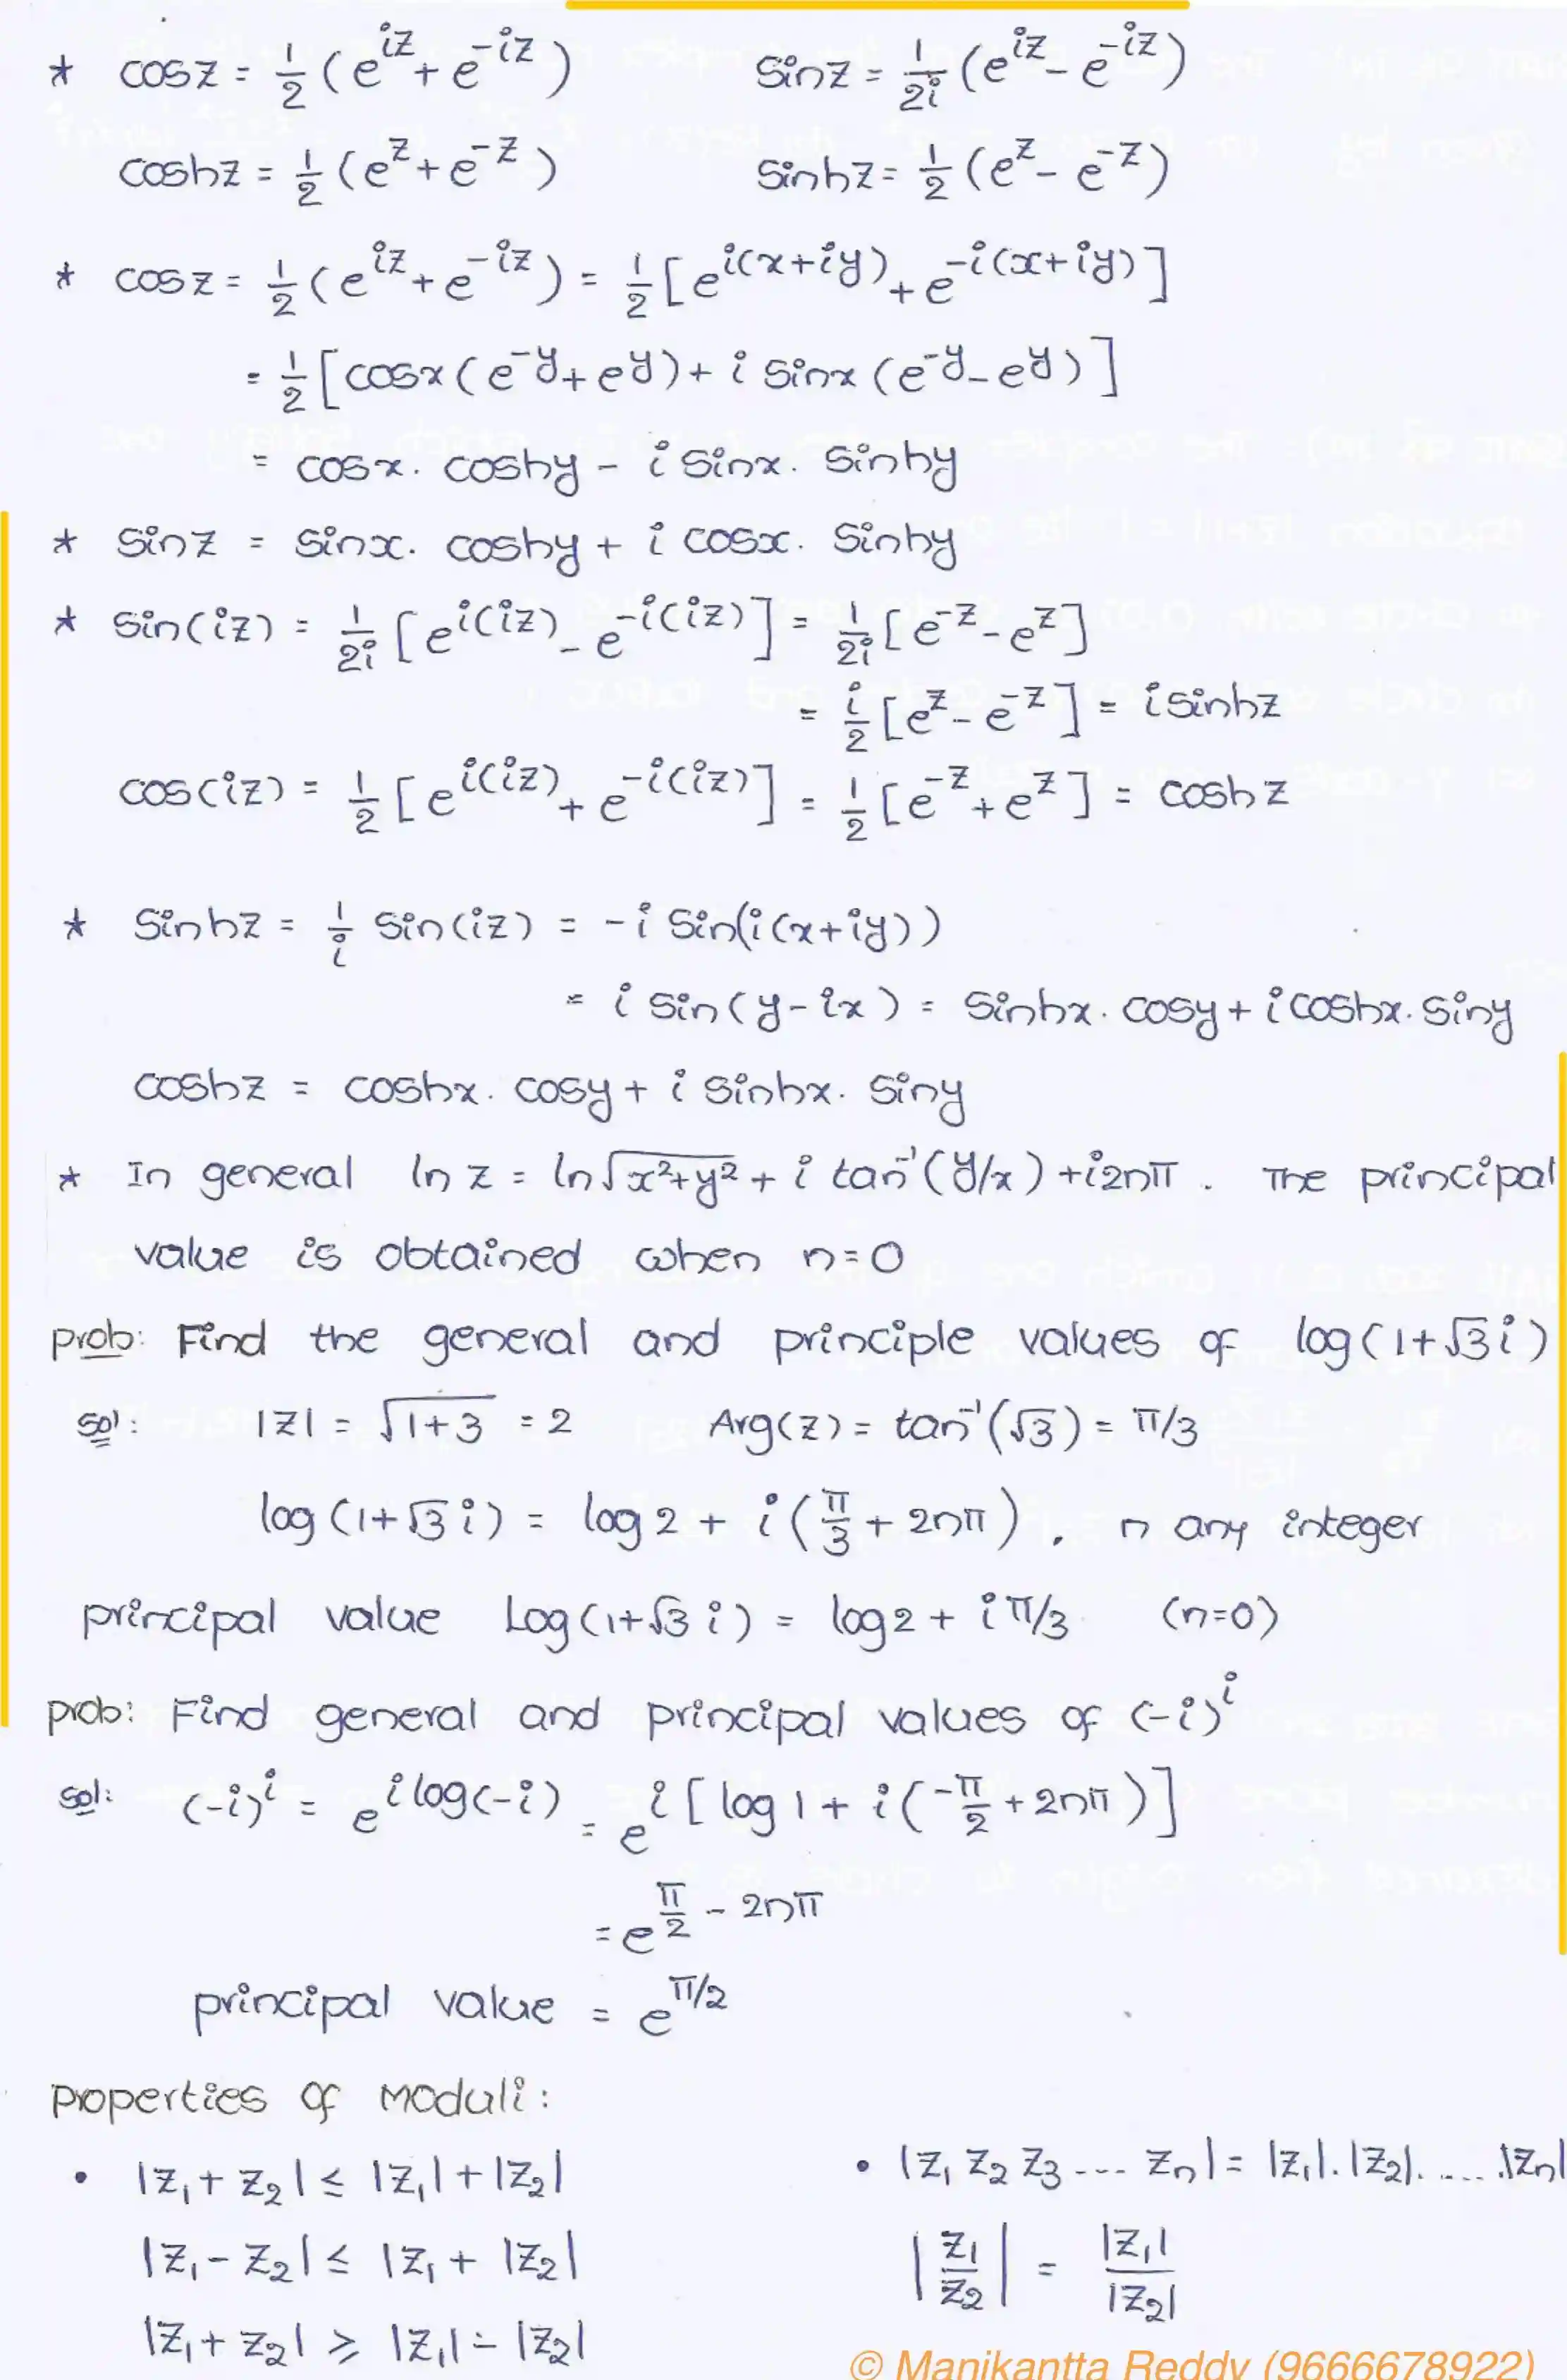 * cosz = 1/2 (e^{iz} + e^{-iz}) sinz = 1/2i (e^{iz} - e^{-iz})
coshz = 1/2 (e^z + e^{-z}) sinhz = 1/2 (e^z - e^{-z})
* cosz = 1/2 (e^{iz} + e^{-iz}) = 1/2 [e^{i(x+iy)} + e^{-i(x+iy)}]
= 1/2 [cosx (e^{-y} + e^y) + i sinx (e^{-y} - e^y)]
= cosx. coshy - i sinx. sinhy
* sinz = sinx. coshy + i cosx. sinhy
* sin(iz) = 1/2i [e^{i(iz)} - e^{-i(iz)}] = 1/2i [e^{-z} - e^z]
= i/2 [e^z - e^{-z}] = i sinhz
cos(iz) = 1/2 [e^{i(iz)} + e^{-i(iz)}] = 1/2 [e^{-z} + e^z] = coshz
* sinhz = 1/i sin(iz) = -i sin(i(x+iy))
= i sin(y-ix) = sinhx. cosy + i coshx. siny
coshz = coshx. cosy + i sinhx. siny
* In general ln z = ln √(x²+y²) + i tan⁻¹(y/x) + i2nπ. The principal
value is obtained when n=0
prob: Find the general and principle values of log(1+√3 i)
sol: |z| = √(1+3) = 2 Arg(z) = tan⁻¹(√3) = π/3
log(1+√3 i) = log 2 + i(π/3 + 2nπ), n any integer
principal value Log(1+√3 i) = log 2 + i π/3 (n=0)
prob: Find general and principal values of (-i)^i
sol: (-i)^i = e^{i log(-i)} = e^{i [log 1 + i(-π/2 + 2nπ)]}
= e^{π/2 - 2nπ}
principal value = e^{π/2}
properties of Moduli:
• |z₁ + z₂| ≤ |z₁| + |z₂| • |z₁ z₂ z₃ ---- zₙ| = |z₁|.|z₂|. .... .|zₙ|
|z₁ - z₂| ≤ |z₁ + |z₂| |z₁/z₂| = |z₁|/|z₂|
|z₁ + z₂| ≥ |z₁| - |z₂|
© Manikantta Reddy (9666678922)